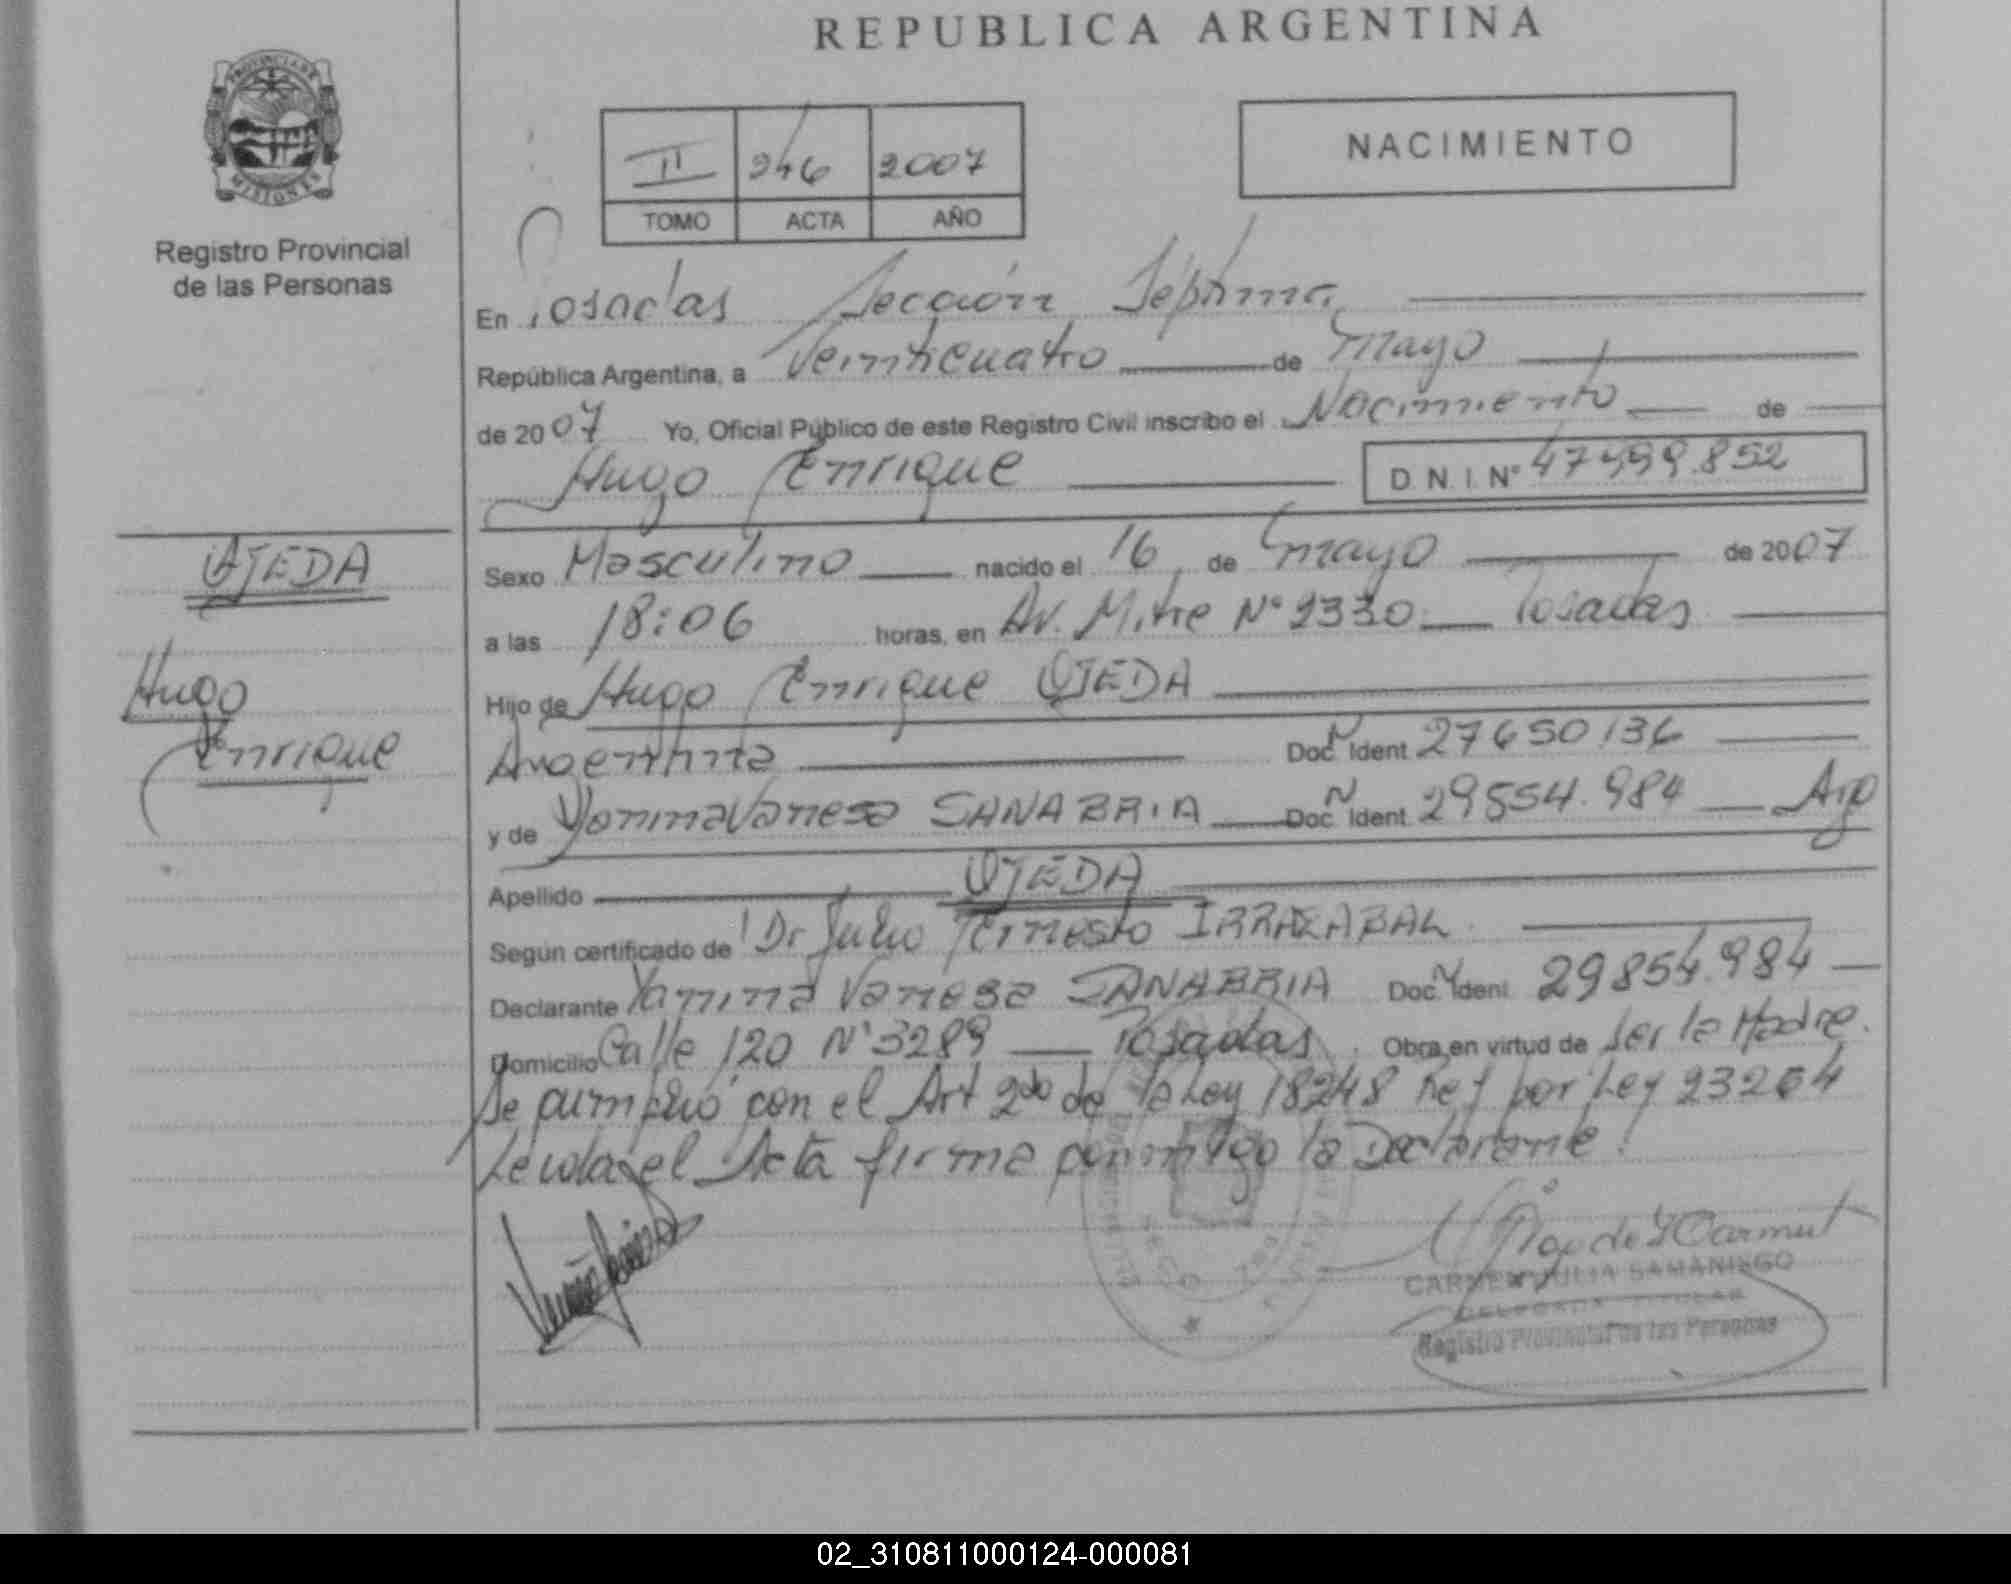 REPUBLICA ARGENTINA
PROVINCIA DE
MISIONES
Registro Provincial
de las Personas
II 246 2007
TOMO ACTA AÑO
NACIMIENTO
En Posadas Sección Séptima
República Argentina, a Veinticuatro de mayo
de 2007 Yo, Oficial Público de este Registro Civil inscribo el Nacimiento de
Hugo Enrique D.N.I. N° 47.599.852
OJEDA
Hugo
Enrique
Sexo Masculino nacido el 16 de mayo de 2007
a las 18:06 horas, en Av. Mitre N° 2330 Posadas
Hijo de Hugo Enrique OJEDA
Argentina Doc. Ident. 27650136
y de Yanina Vanesa SANABRIA Doc. Ident. 29854.984 Arg
Apellido OJEDA
Según certificado de Dr Julio Ernesto IRRAZABAL
Declarante Yanina Vanesa SANABRIA Doc. Ident. 29854.984
Domicilio Calle 120 N° 3289 Posadas Obra en virtud de Ser la Madre.
Se cumplió con el Art 2do de la Ley 18248 Ref por Ley 23264
Leida el Acta firma conmigo la Declarante.
CARMEN JULIA SAMANIEGO
DELEGADA TITULAR
Registro Provincial de las Personas
02_310811000124-000081